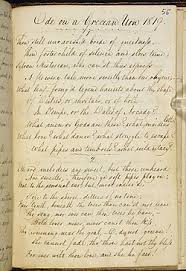 58
Ode on a Grecian Urn 1819.
1
Thou still unravished bride of quietness,
Thou foster child of silence and slow time
Sylvan Historian, who canst thus express
A flowery tale more sweetly than our rhyme.
What leaf-fring'd legend haunts about thy shape
Of Deities, or mortals, or of both
In Tempe, or the Dales of Arcady?
What men or Gods are these? what maidens
What love? what dance? what struggle to escape
What pipes and timbrels? what wild
2
Heard melodies are sweet, but those unheard
Are sweeter, therefore ye soft pipes play on;
Not to the sensual ear, but, more endear'd
Pipe to the spirit ditties of no tone:
Fair youth, beneath the trees thou canst not leave
Thy song, nor ever can those trees be bare,
Bold lover, never, never canst thou kiss
Tho winning near the goal, O, do not grieve!
She cannot fade, tho' thou hast not thy bliss
For ever wilt thou love, and she be fair.